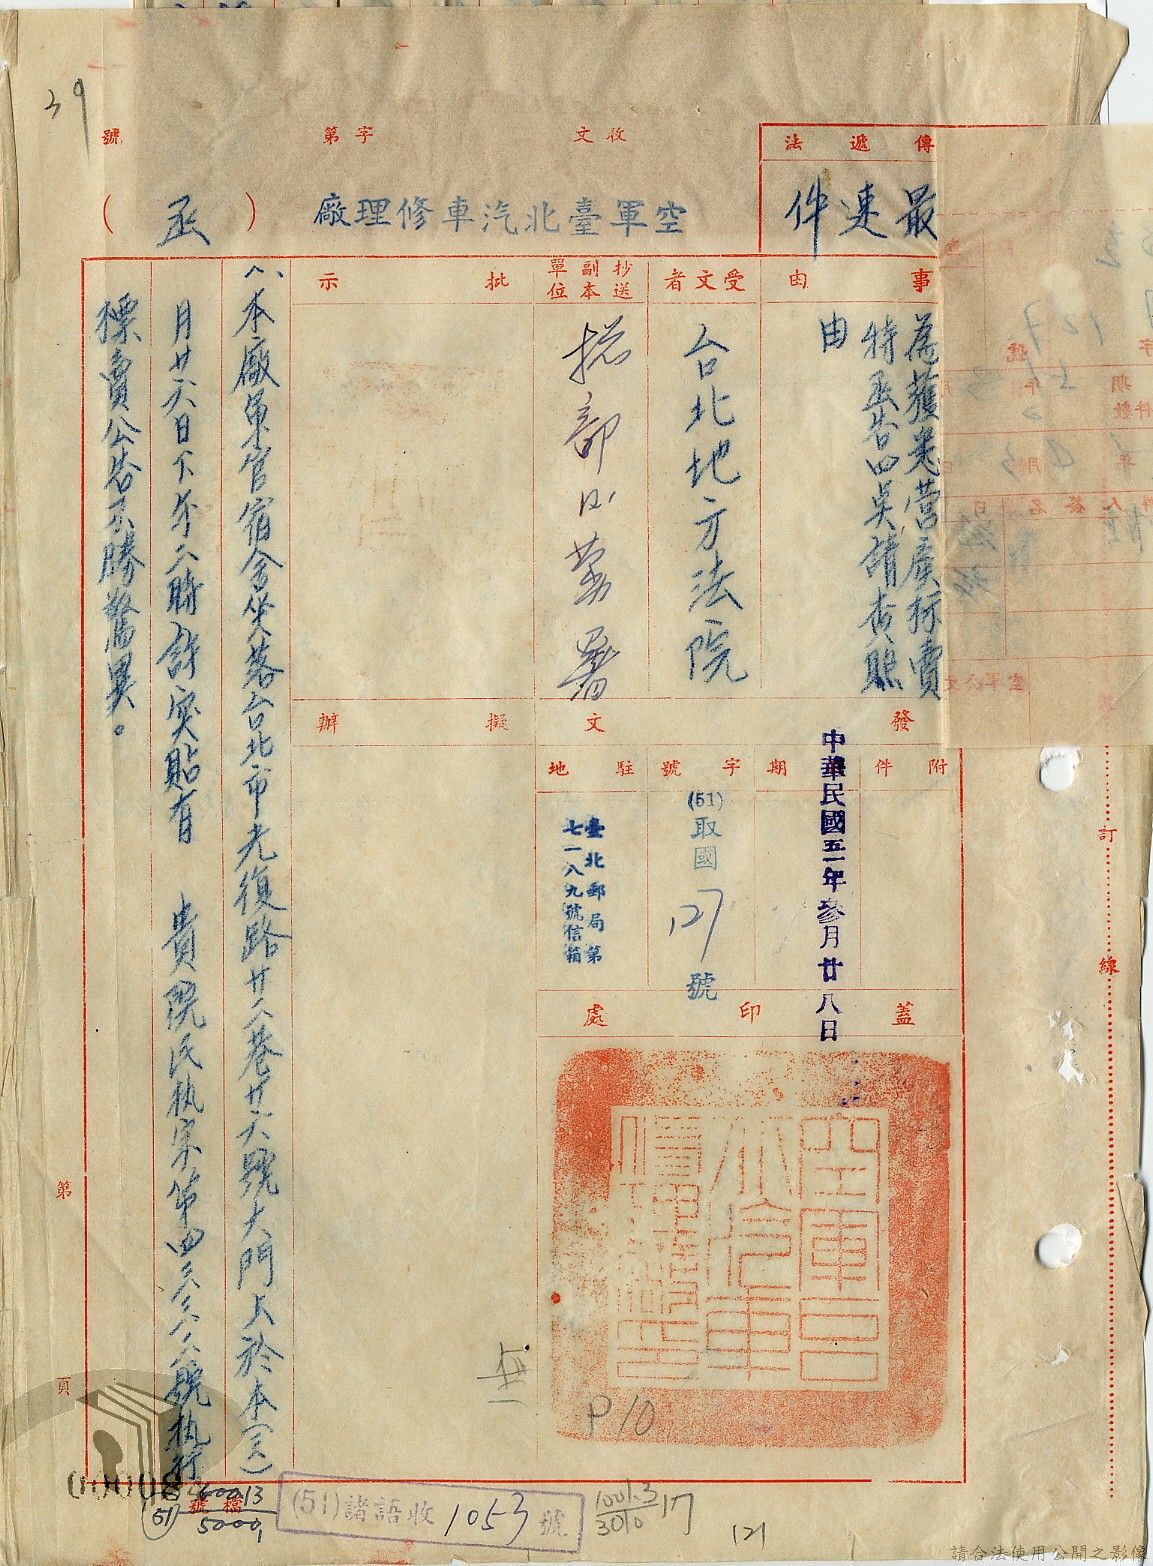 39
收文 字第 號
傳遞法
最速件
空軍臺北汽車修理廠
(函)
事由
為獲悉營產标賣
特函告四吳請查照
由
受文者
台北地方法院
抄送副本單位
批示
擬辦
發文
附件
字號
期
駐地
中華民國五一年參月廿八日
(51)取國127號
臺北郵局第
七一八九號信箱
蓋印處
一、本廠軍官宿舍坐落台北市光復路廿二巷廿六號大門上於本(三)
月廿六日下午六時許突貼有 貴院民执字第四三六八六號执行
標賣公告不勝驚異。
P10
訂
線
第
頁
檔號
(51)
5000
(51)諸語收1053號
1001.3
3010
17
121
請合法使用公開之影像